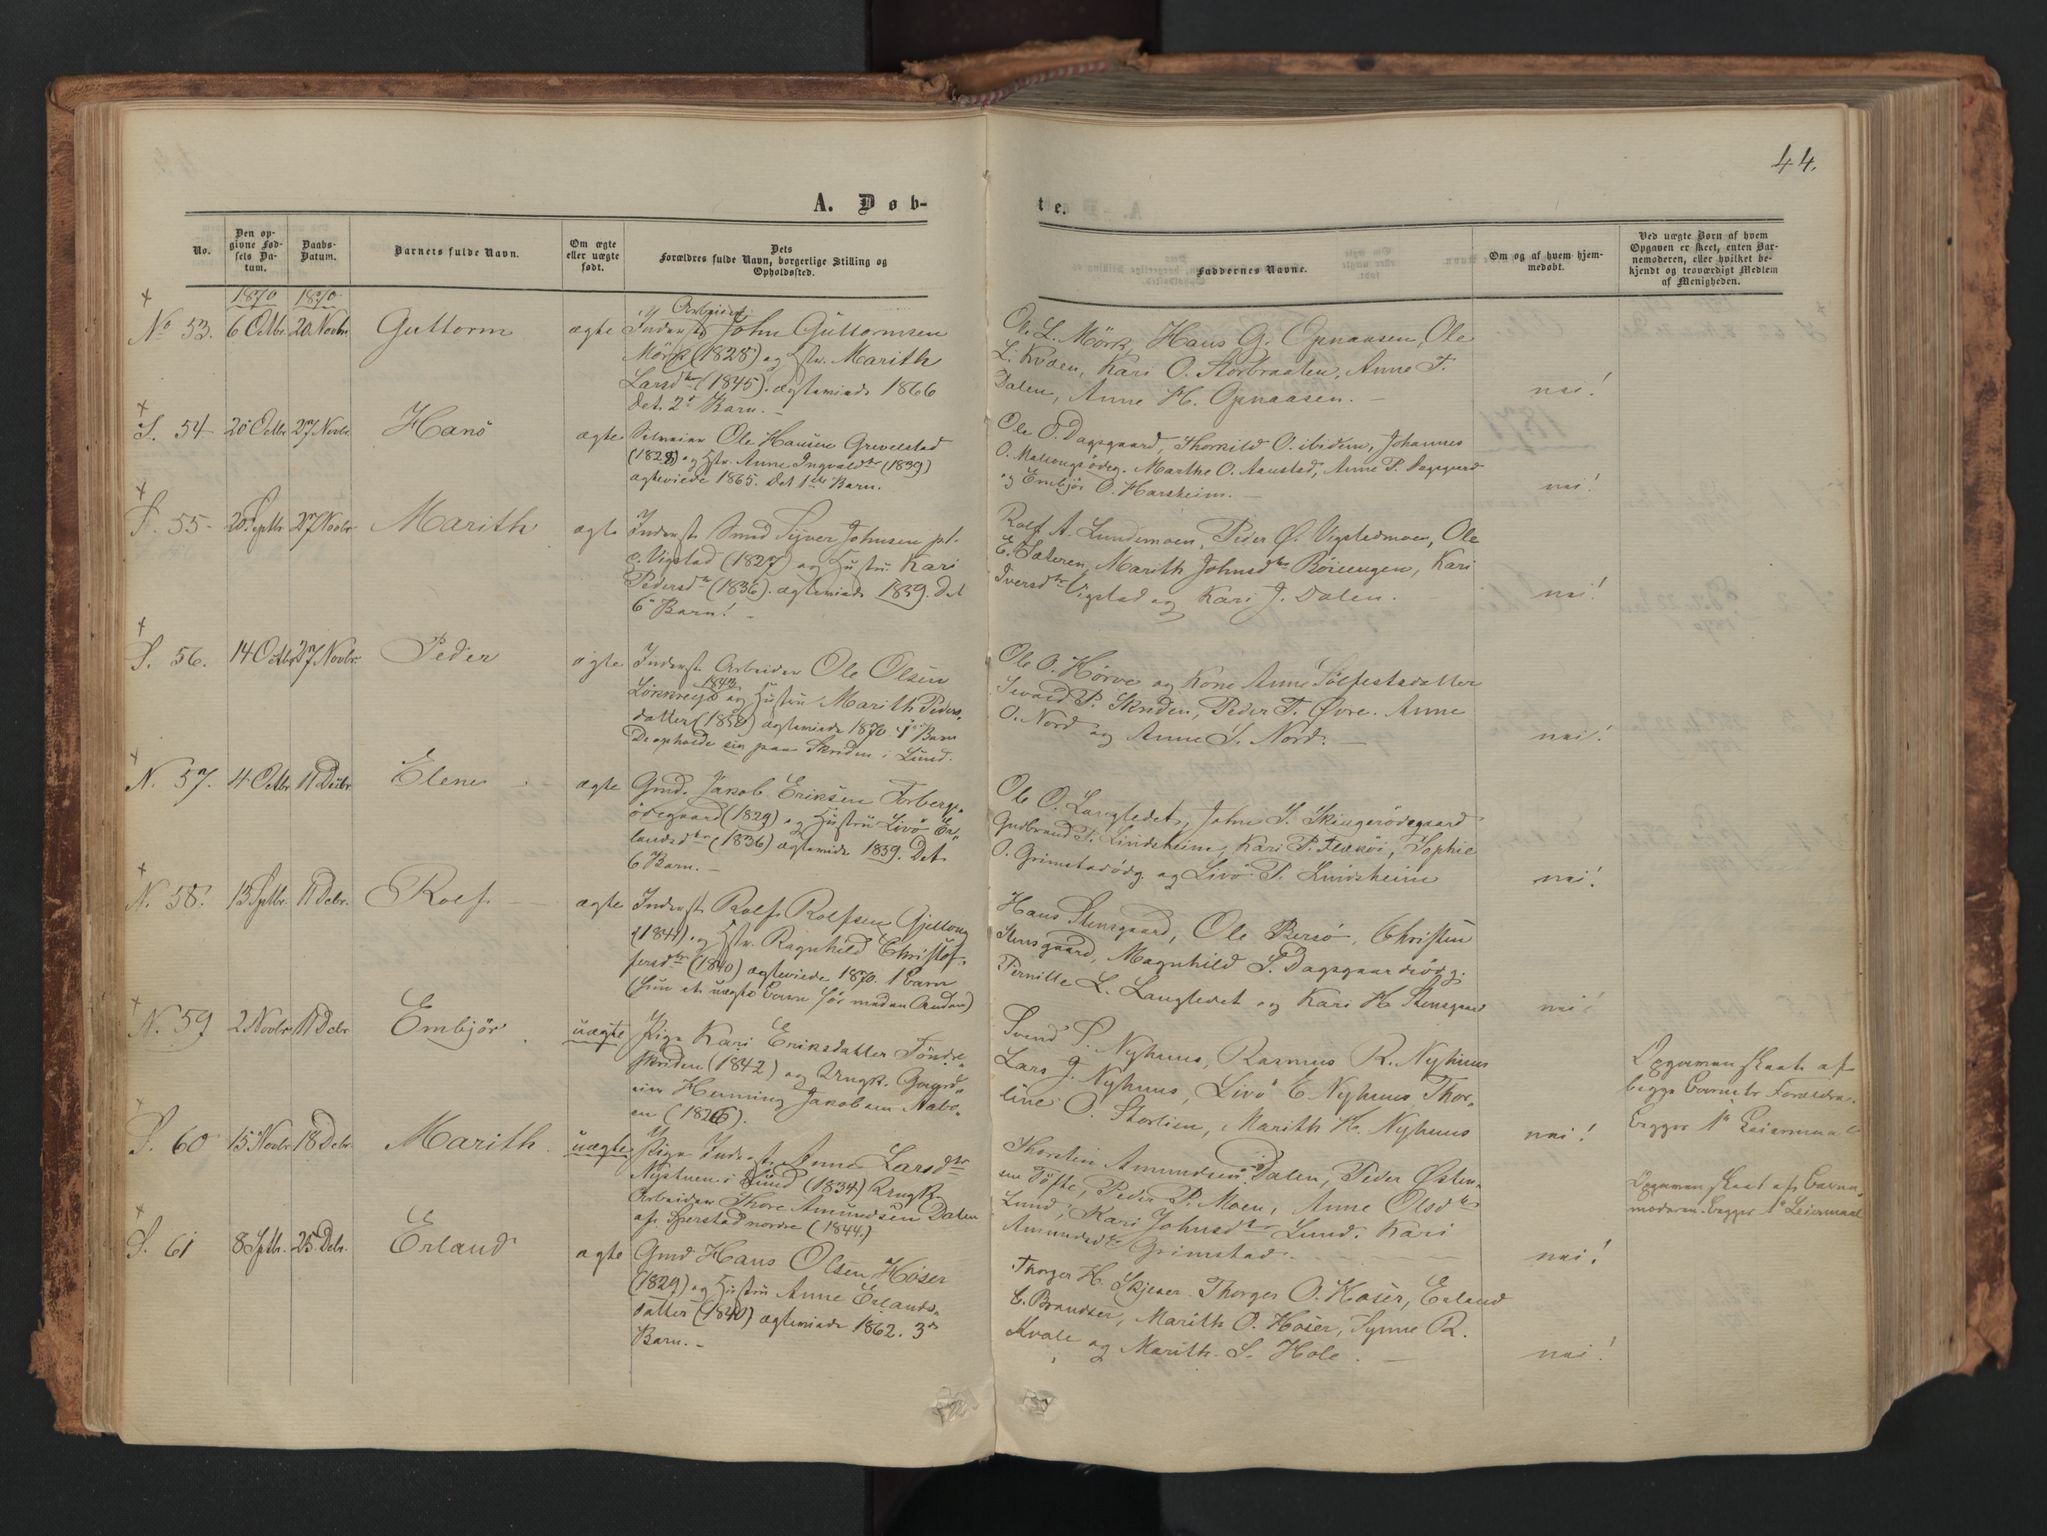 44.
A. Døb-
te.
No.
Den op-
givne Fød-
sels Da-
tum.
Daabs-
Datum.
Barnets fulde Navn.
Om ægte
eller uægte
født.
Dets
Forældres fulde Navn, borgerlige Stilling og
Opholdssted.
Faddernes Navne.
Om og af hvem hjem-
medøbt.
Ved uægte Børn af hvem
Opgaven er skeet, enten Bar-
nemoderen, eller hvilket be-
kjendt og troværdigt Medlem
af Menigheden.
1870 1870
No 53. 6 Octbr 20 Novbr. Guttorm ægte
Arbeider
Inderst John Guttormsen
Mørk (1828) og Hstr. Marith
Larsdtr (1845). ægteviede 1866
Det 2t Barn. -
Ole L. Mørk, Hans G. Opnaasen, Ole
L. Kvæen, Kari O. Storbraaten, Anne T.
Dalen, Anne H. Opnaasen. -
nei!
S. 54 20 Octbr 27 Novbr. Hans ægte
Selveier Ole Hansen Grevelstad
(1828) og Hstr. Anne Ingvaldtr (1839)
ægteviede 1865. Det 1ste Barn.
Ole O. Dagsgaard, Thorkild O. ibidem, Johannes
O. Mallongsødeg. Marthe O. Aanstad, Anne P. Dagsgaard
og Embjør O. Harsheim. -
nei!
S. 55 20 Septbr 27 Novbr Marith ægte
Inderst Smed Syver Johnsen pl.
e. Vigstad (1827) og Hustru Kari
Pedersdtr (1836). ægteviede 1859. Det
6te Barn!
Rolf A. Lundemoen, Peder Ø. Vigstedmoen, Ole
E. Sæteren, Marith Johnsdtr Børiengen, Kari
Iversdtr Vigstad og Kari J. Dalen.
nei!
S. 56. 14 Octbr 27 Novbr. Peder ægte
Inderst Arbeider Ole Olsen
1843
Løkkreejd og Hustru Marith Peders-
datter (1850) ægteviede 1870. 1t Barn
De opholde sig paa Skriden i Lund.
Ole O. Hørve og Kone Anne Sølfestsdatter
Sevald P. Skriden, Peder T. Øvre. Anne
O. Nord og Anne S. Nord. -
nei!
N. 57. 4 Octbr 11 Decbr. Elene ægte
Gmd. Jakob Eriksen Torberg-
ødegaard (1829) og Hustru Livø Er-
landsdtr (1836) ægteviede 1859. Det
6 Barn. -
Ole O. Langledet, John S. Skingerødegaard
Gudbrand P. Lindsheim, Kari P. Flækøi, Sophie
O. Grimstadødg og Livø P. Lindsheim
nei!
N. 58! 13 Septbr. 11 Decbr. Rolf ægte
Inderst Rolf Rolfsen Gjeilong
(1841). og Hstr. Ragnhild Christof-
fersdtr (1840) ægteviede 1870. 1 Barn
(hun et uægte Barn før med en Anden)
Hans Stensgaard, Ole Bersø, Christen
Stensgaard, Magnhild S. Dagsgaardsødg.
Pernille L. Langledet og Kari H Stensgaard
nei!
N. 59 2 Novbr 11 Decbr Embjør uægte
Pige Kari Eriksdatter Søndre
Skriden (1842) og Ungk. Gaard-
eier Henning Jakobsen Nabo-
en (1826).
Svend S. Nyhuus, Rasmus R. Nyhuus
Lars J. Nyhuus, Livø E Nyhuus Thor-
line O. Storlien, Marith H. Nyhuus
nei!
Opgaven skeet af
begge Barnets Forældre.
Begges 1te Leiermaal
S. 60 15 Novbr 18 Decbr. Marith uægte
Pige Inderst Anne Larsdtr
Nystuen i Lund (1834) Ungk
Arbeider Thore Amundsen Dalen
af Sperstad nordre (1844.)
Thorstein Amundsen Dalen, Peder Østen-
sen Tøfte, Peder P. Moen, Anne Olsdtr
Lund, Kari Johnsdtr Lund. Kari
Amundsdtr Grimstad
nei!
Opgaven skeet af Barne-
moderen. Begges 1te Leiermaal
S. 61 8 Septbr. 25 Debr. Erland ægte
Gmd Hans Olsen Høser
(1829) og Hustru Anne Erlands-
datter (1840) ægteviede 1862. 3de
Barn. -
Thorger H. Skjeser. Thorger O. Høser, Erland
E. Brandser, Marith O. Høser, Synne R.
Kvale og Marith S. Hole. -
nei!